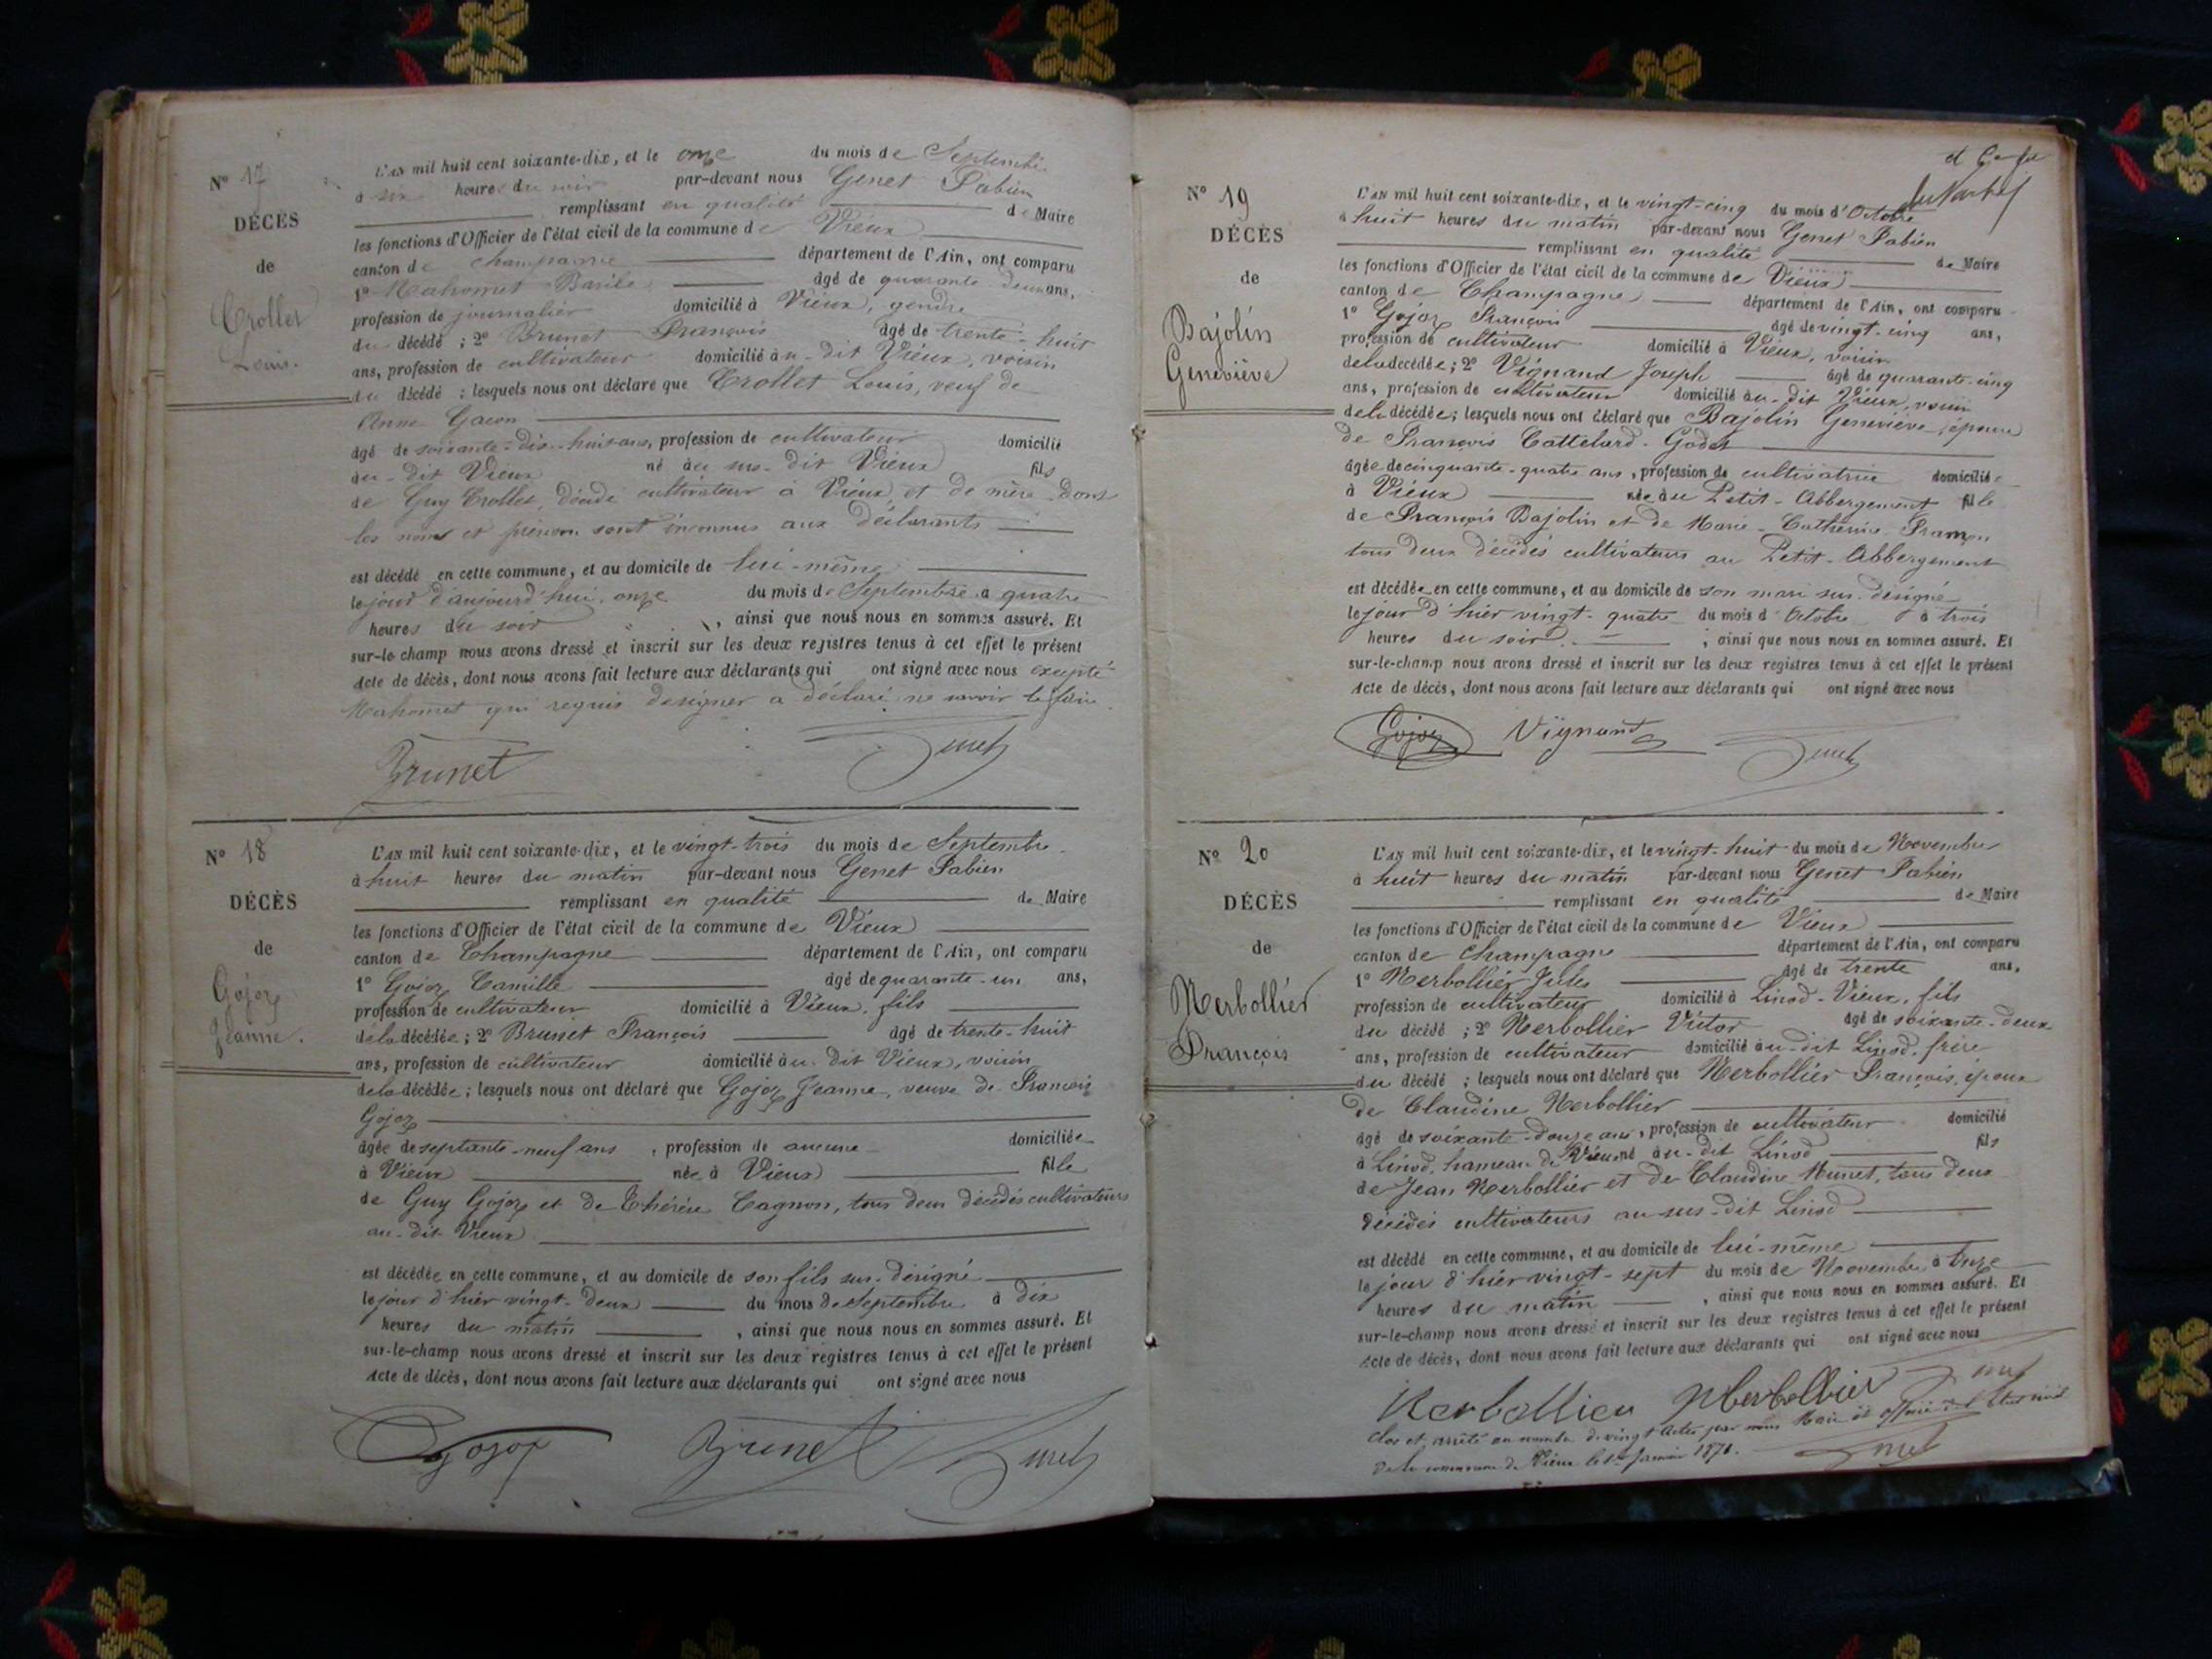 N° 17
DÉCÈS
de
Crollet
Louis.
L'AN mil huit cent soixante-dix, et le onze du mois de Septembre
à six heures du soir par-devant nous Genet Fabien
remplissant en qualité de Maire
les fonctions d'Officier de l'état civil de la commune de Vieux
canton de Champagne département de l'Ain, ont comparu
1° Mahomet Basile âgé de quarante deux ans,
profession de journalier domicilié à Vieux, gendre
du décédé ; 2° Brunet François âgé de trente-huit
ans, profession de cultivateur domicilié au-dit Vieux, voisin
du décédé ; lesquels nous ont déclaré que Crollet Louis, veuf de
Anne
âgé de soixante-dix-huit ans, profession de cultivateur domicilié
au-dit Vieux né au sus-dit Vieux fils
de Guy Crollet, décédé cultivateur à Vieux et de mère dont
les noms et prénom sont inconnus aux déclarants
est décédé en cette commune, et au domicile de lui-même
le jour d'aujourd'hui, onze du mois de Septembre à quatre
heures du soir, ainsi que nous nous en sommes assuré. Et
sur-le champ nous avons dressé et inscrit sur les deux registres tenus à cet effet le présent
Acte de décès, dont nous avons fait lecture aux déclarants qui ont signé avec nous excepté
Mahomet qui requis de signer a déclaré ne savoir le faire.
Brunet Genet
N° 18
DÉCÈS
de
Gojoz
Jeanne.
L'AN mil huit cent soixante-dix, et le vingt-trois du mois de Septembre
à huit heures du matin par-devant nous Genet Fabien
remplissant en qualité de Maire
les fonctions d'Officier de l'état civil de la commune de Vieux
canton de Champagne département de l'Ain, ont comparu
1° Gojoz Camille âgé de quarante-un ans,
profession de cultivateur domicilié à Vieux, fils
de la décédée ; 2° Brunet François âgé de trente-huit
ans, profession de cultivateur domicilié au-dit Vieux, voisin
de la décédée ; lesquels nous ont déclaré que Gojoz Jeanne, veuve de François
Gojoz
âgée de septante-neuf ans, profession de aucune domiciliée
à Vieux née à Vieux fille
de Guy Gojoz et de Thérèse Cagnon, tous deux décédés cultivateurs
au-dit Vieux
est décédée en cette commune, et au domicile de son fils sus-désigné
le jour d'hier vingt-deux du mois de Septembre à dix
heures du matin, ainsi que nous nous en sommes assuré. Et
sur-le-champ nous avons dressé et inscrit sur les deux registres tenus à cet effet le présent
Acte de décès, dont nous avons fait lecture aux déclarants qui ont signé avec nous
Gojoz Brunet Genet
N° 19
DÉCÈS
de
Bajolin
Geneviève
L'AN mil huit cent soixante-dix, et le vingt-cinq du mois d'Octobre
à huit heures du matin par-devant nous Genet Fabien
remplissant en qualité de Maire
les fonctions d'Officier de l'état civil de la commune de Vieux
canton de Champagne département de l'Ain, ont comparu
1° Gojoz François âgé de vingt-cinq ans,
profession de cultivateur domicilié à Vieux, voisin
de la décédée ; 2° Vignand Joseph âgé de quarante-cinq
ans, profession de cultivateur domicilié au-dit Vieux, voisin
de la décédée ; lesquels nous ont déclaré que Bajolin Geneviève, épouse
de François Cattelard-Godet
âgée de cinquante-quatre ans, profession de cultivatrice domiciliée
à Vieux née au Petit-Abbergement fille
de François Bajolin et de Marie-Catherine
tous deux décédés cultivateurs au Petit-Abbergement
est décédée en cette commune, et au domicile de son mari sus-désigné
le jour d'hier vingt-quatre du mois d'Octobre à trois
heures du soir ; ainsi que nous nous en sommes assuré. Et
sur-le-champ nous avons dressé et inscrit sur les deux registres tenus à cet effet le présent
Acte de décès, dont nous avons fait lecture aux déclarants qui ont signé avec nous
Gojoz Vignand Genet
N° 20
DÉCÈS
de
Nerbollier
François
L'AN mil huit cent soixante-dix, et le vingt-huit du mois de Novembre
à huit heures du matin par-devant nous Genet Fabien
remplissant en qualité de Maire
les fonctions d'Officier de l'état civil de la commune de Vieux
canton de Champagne département de l'Ain, ont comparu
1° Nerbollier Jules âgé de trente ans,
profession de cultivateur domicilié à Linod-Vieux, fils
du décédé ; 2° Nerbollier Victor âgé de soixante-deux
ans, profession de cultivateur domicilié au-dit Linod, frère
du décédé ; lesquels nous ont déclaré que Nerbollier François, époux
de Claudine Nerbollier
âgé de soixante-douze ans, profession de cultivateur domicilié
à Linod, hameau de Vieux né au-dit Linod fils
de Jean Nerbollier et de Claudine Munet, tous deux
décédés cultivateurs au sus-dit Linod
est décédé en cette commune, et au domicile de lui-même
le jour d'hier vingt-sept du mois de Novembre à onze
heures du matin, ainsi que nous nous en sommes assuré. Et
sur-le-champ nous avons dressé et inscrit sur les deux registres tenus à cet effet le présent
Acte de décès, dont nous avons fait lecture aux déclarants qui ont signé avec nous
Nerbollier Nerbollier Genet
Clos et arrêté au nombre de vingt actes par nous Maire et officier de l'État civil
de la commune de Vieux le 1er Janvier 1871. Genet